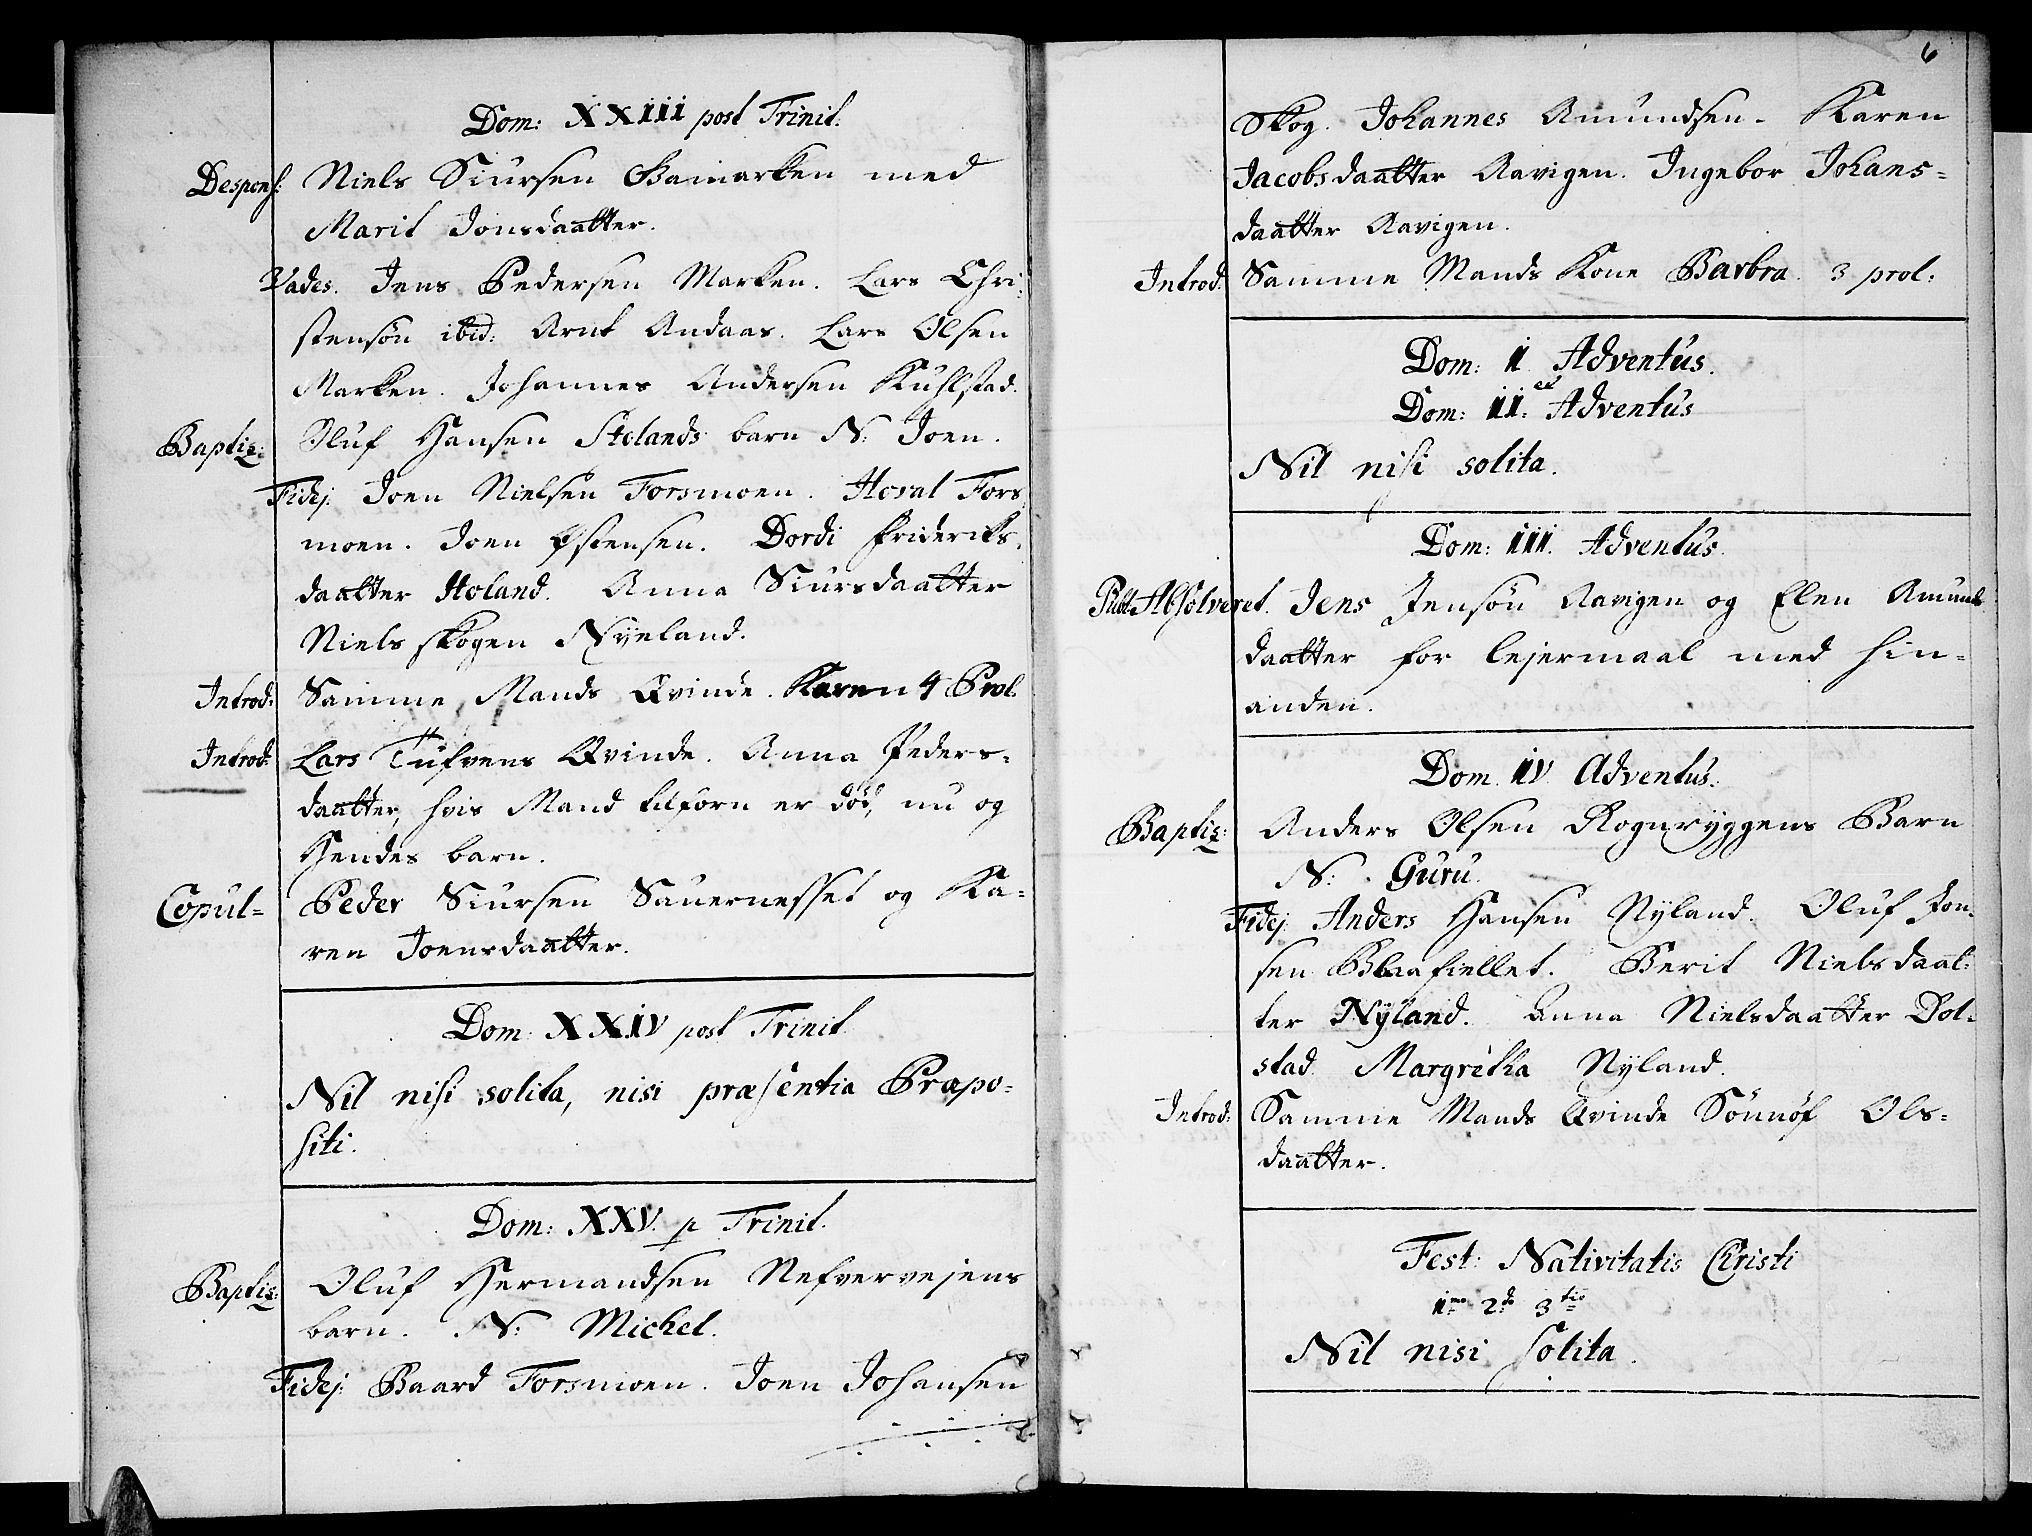 Dom: XXIII post Trinit.
Despons: Niels Siursen Baimarken med
Marit Jonsdaatter.
Vades. Jens Pedersen Marken. Lars Chri-
stensøn ibid: Arnt Andaas. Lars Olsen
Marken. Johannes Andersen Kuhlstad.
Baptiz: Oluf Hansen Stolands barn N: Joen.
Fidej. Joen Nielsen Forsmoen. Hoval Fors-
moen. Joen Østensen. Dordi Friderichs-
daatter Holand. Anna Siursdaatter
Nielsskogen Nyeland.
Introd: Samme Mands Qvinde. Karen 4 Prol.
Introd: Lars Tufvens Qvinde. Anna Peders-
daatter, hvis Mand tilforn er død, nu og
Hendes barn.
Copul= Peder Siursen Sauernesset og Ka-
ren Joensdaatter.
Dom: XXIV post Trinit.
Nil nisi solita, nisi præsentia Præpo-
siti.
Dom: XXV. p Trinit.
Baptiz: Oluf Hermandsen Nefvervejens
barn. N: Michel.
Fidej: Baard Forsmoen. Joen Johansen
6
Skog. Johannes Amundsen. Karen
Jacobsdaatter Aavigen. Ingebor Johans-
daatter Aavigen.
Introd: Samme Mands Kone Barbra. 3 prol:
Dom: I Adventus.
Dom: II. Adventus
Nil nisi solita.
Dom: III. Adventus.
Publ: Absolveret. Jens Jensøn Aavigen og Elen Amunds
daatter for lejermaal med hin-
anden.
Dom. IV Adventus.
Baptiz: Anders Olsen Rognryggens Barn
N: Guru.
Fidej Anders Hansen Nyland. Oluf Jon-
sen Blaafiellet. Berit Nielsdaat-
ter Nyland. Anna Nielsdaatter Dol-
stad. Margretha Nyland.
Introd: Samme Mands Qvinde Sønnøf Ols-
daatter.
Fest: Nativitatis Christi
1mo 2do 3tio
Nil nisi solita.